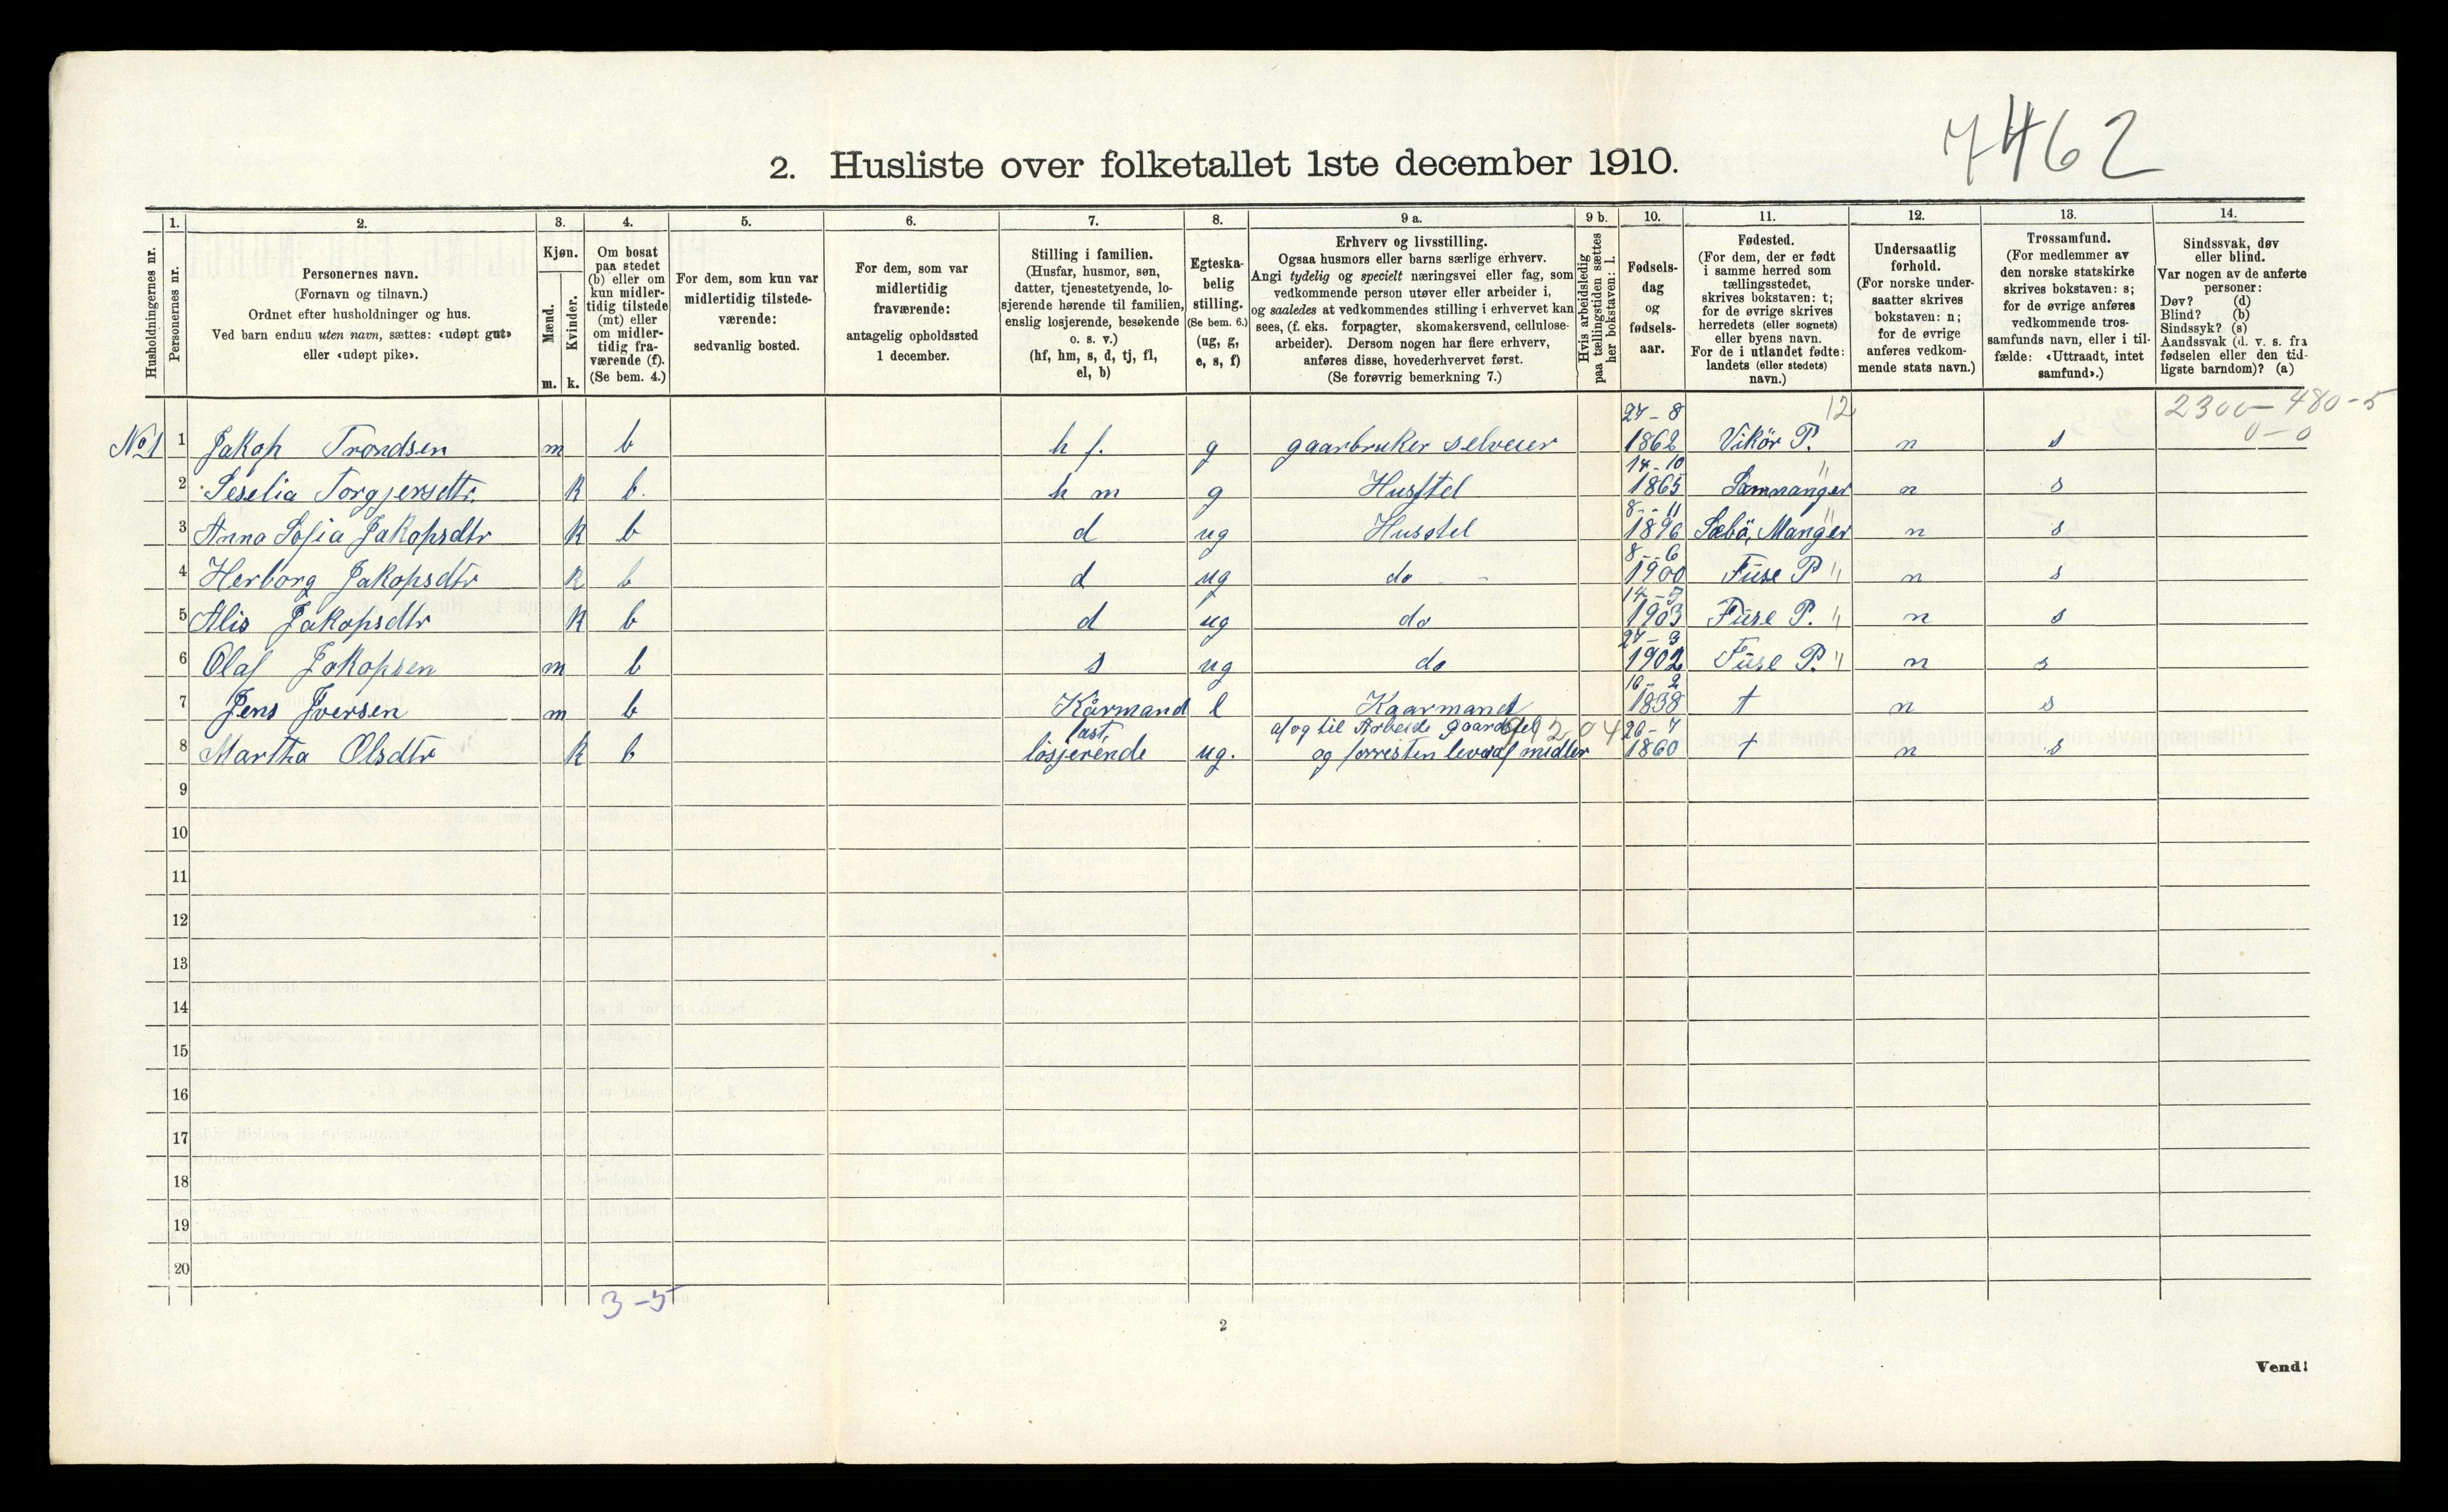 7462
2. Husliste over folketallet 1ste december 1910.
Husholdningernes nr.
1. Personernes nr.
2. Personernes navn.
(Fornavn og tilnavn.)
Ordnet efter husholdninger og hus.
Ved barn endnu uten navn, sættes: «udøpt gut»
eller «udøpt pike».
3. Kjøn.
Mænd. m.
Kvinder. k.
4. Om bosat
paa stedet
(b) eller om
kun midler-
tidig tilstede
(mt) eller
om midler-
tidig fra-
værende (f).
(Se bem. 4.)
5. For dem, som kun var
midlertidig tilstede-
værende:
sedvanlig bosted.
6. For dem, som var
midlertidig
fraværende:
antagelig opholdssted
1 december.
7. Stilling i familien.
(Husfar, husmor, søn,
datter, tjenestetyende, lo-
sjerende hørende til familien,
enslig losjerende, besøkende
o. s. v.)
(hf, hm, s, d, tj, fl,
el, b)
8. Egteska-
belig
stilling.
(Se bem. 6.)
(ug, g,
e, s, f)
9 a. Erhverv og livsstilling.
Ogsaa husmors eller barns særlige erhverv.
Angi tydelig og specielt næringsvei eller fag, som
vedkommende person utøver eller arbeider i,
og saaledes at vedkommendes stilling i erhvervet kan
sees, (f. eks. forpagter, skomakersvend, cellulose-
arbeider). Dersom nogen har flere erhverv,
anføres disse, hovederhvervet først.
(Se forøvrig bemerkning 7.)
9 b. Hvis arbeidsledig
paa tællingstiden sættes
her bokstaven: l.
10. Fødsels-
dag
og
fødsels-
aar.
11. Fødested.
(For dem, der er født
i samme herred som
tællingsstedet,
skrives bokstaven: t;
for de øvrige skrives
herredets (eller sognets)
eller byens navn.
For de i utlandet fødte:
landets (eller stedets)
navn.)
12. Undersaatlig
forhold.
(For norske under-
saatter skrives
bokstaven: n;
for de øvrige
anføres vedkom-
mende stats navn.)
13. Trossamfund.
(For medlemmer av
den norske statskirke
skrives bokstaven: s;
for de øvrige anføres
vedkommende tros-
samfunds navn, eller i til-
fælde: «Uttraadt, intet
samfund».)
14. Sindssvak, døv
eller blind.
Var nogen av de anførte
personer:
Døv? (d)
Blind? (b)
Sindssyk? (s)
Aandssvak (d. v. s. fra
fødselen eller den tid-
ligste barndom)? (a)
12 2300-480-5
0-0
No 1 1 Jakop Trondsen m b h f. g gaarbruker selveier 27-8 1862 Vikör P. n s
2 Seselia Torgjersdtr. K b. h m g Husstel 14-10 1865 Samnanger " n s
3 Anna Sofia Jakopsdtr K b d ug Husstel 8--11 1896 Sæbö, Manger " n s
4 Herborg Jakopsdtr K b d ug do - 8--6 1900 Füse P " n s
5 Alis Jakopsdtr K b d ug do 1903 Füse P. " n s
6 Olaf Jakopsen m b s ug do 27-3 1902 Füse P. " n s
7 Jens Iversen m b Kårmand l Kaarmand 16-2 1838 t n s
8 Martha Olsdtr K b fast losjerende ug. af og til Arbeide Gaardstel
og forresten lever af midler 26-7 1860 t n s
9
10
11
12
13
14
15
16
17
18
19
20
3-5
2
Vend!